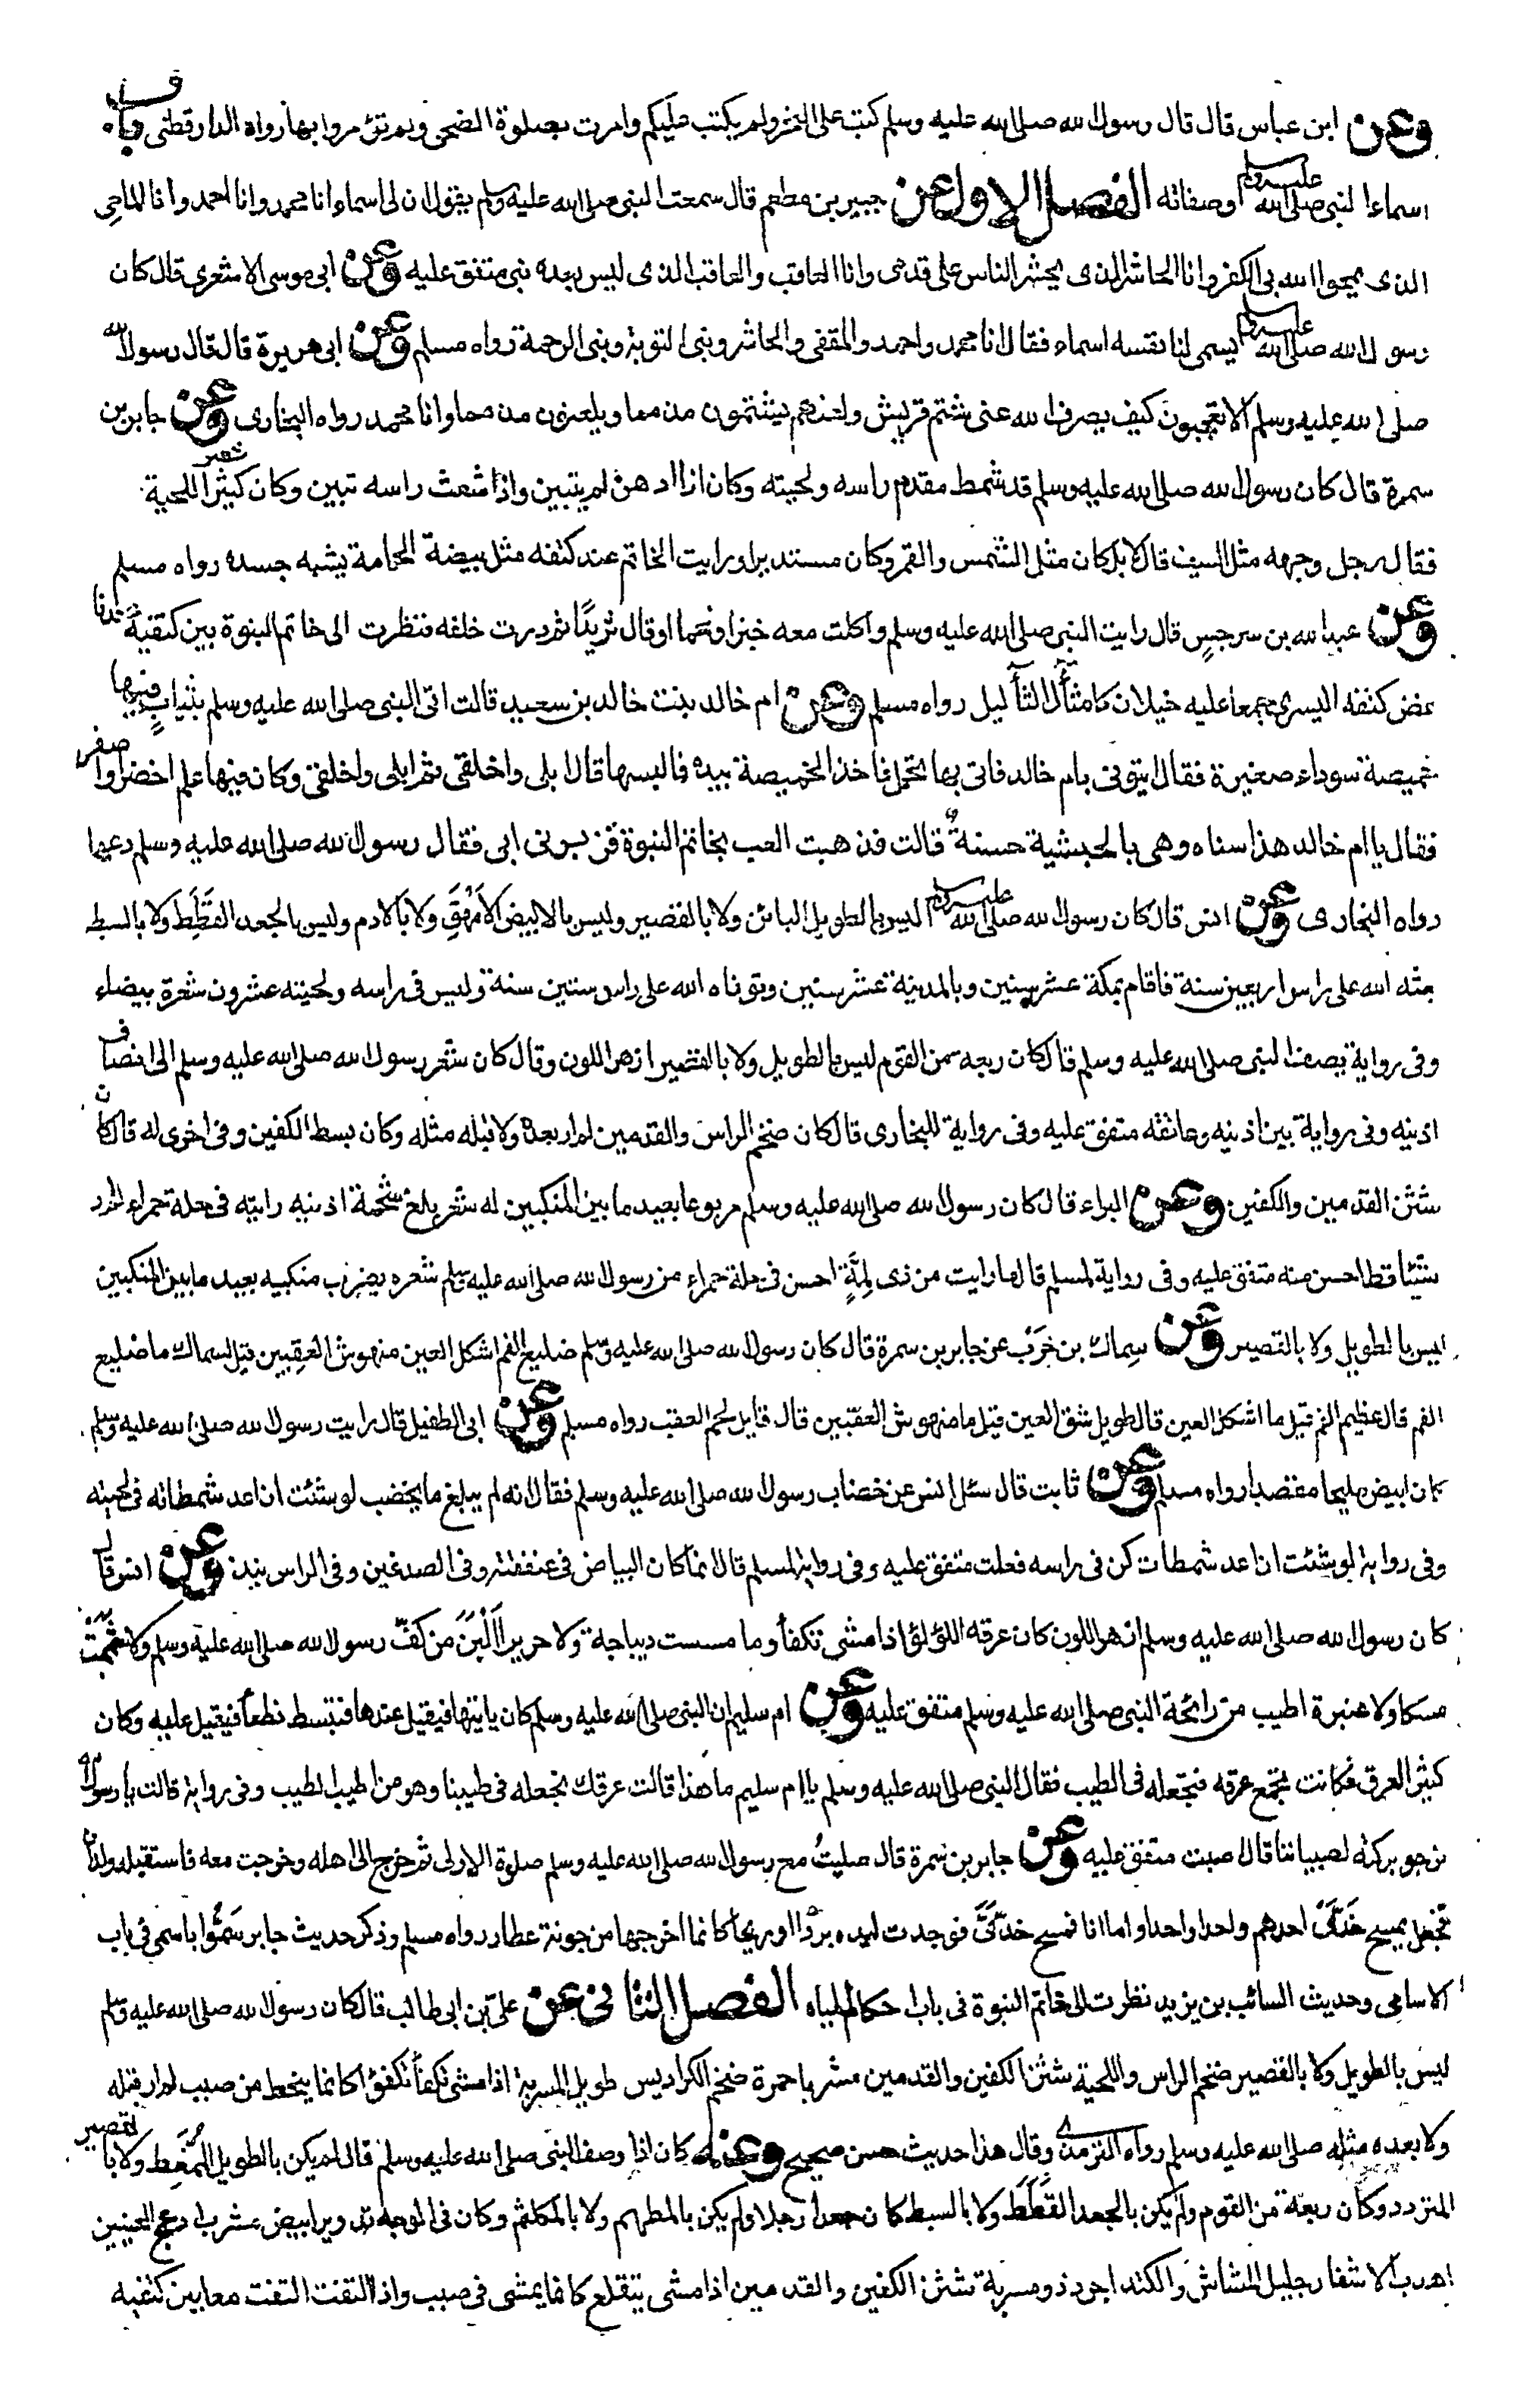 وعن ابن عباس قال قال رسول الله صلى الله عليه وسلم كتب على النحر ولم يكتب عليكم وامرت بصلوة الضحى ولم تؤمروا بها رواه الدارقطنى باب
اسماء النبى صلى الله عليه وسلم وصفاته الفصل الاول عن جبير بن مطعم قال سمعت النبى صلى الله عليه وسلم يقول ان لى اسماء انا محمد وانا احمد وانا الماحى
الذى يمحوا الله بى الكفر وانا الحاشر الذى يحشر الناس على قدمى وانا العاقب والعاقب الذى ليس بعده نبى متفق عليه وعن ابى موسى الاشعرى قال كان
رسول الله صلى الله عليه وسلم يسمى لنا نفسه اسماء فقال انا محمد واحمد والمقفى والحاشر ونبى التوبة ونبى الرحمة رواه مسلم وعن ابى هريرة قال قال رسول الله
صلى الله عليه وسلم الا تعجبون كيف يصرف الله عنى شتم قريش ولعنهم يشتمون مذمما ويلعنون مذمما وانا محمد رواه البخارى وعن جابر بن
سمرة قال كان رسول الله صلى الله عليه وسلم قد شمط مقدم راسه ولحيته وكان اذا ادهن لم يتبين واذا شعث راسه تبين وكان كثير شعر اللحية
فقال رجل وجهه مثل السيف قال لا بل كان مثل الشمس والقمر وكان مستديرا ورايت الخاتم عند كتفه مثل بيضة الحمامة يشبه جسده رواه مسلم
وعن عبد الله بن سرجس قال رايت النبى صلى الله عليه وسلم واكلت معه خبزا ولحما او قال ثريدًا ثم درت خلفه فنظرت الى خاتم النبوة بين كتفيه عند نا
غض كتفه اليسرى جمعا عليه خيلان كامثال الثآليل رواه مسلم وعن ام خالد بنت خالد بن سعيد قالت اتى النبى صلى الله عليه وسلم بثيابٍ فيها
خميصة سوداء صغيرة فقال ايتونى بام خالد فاتى بها تحمل فاخذ الخميصة بيده فالبسها قال ابلى واخلقى ثم ابلى واخلقى وكان فيها علم اخضر او اصفر
فقال يا ام خالد هذا سناه وهى بالحبشية حسنةٌ قالت فذهبت العب بخاتم النبوة فزبرنى ابى فقال رسول الله صلى الله عليه وسلم دعها
رواه البخارى وعن انس قال كان رسول الله صلى الله عليه وسلم ليس بالطويل البائن ولا بالقصير وليس بالابيض الامهق ولا بالادم وليس بالجعد القطط ولا بالسبط
بعثه الله على راس اربعين سنة فاقام بمكة عشر سنين وبالمدينة عشر سنين وتوفاه الله على راس ستين سنة وليس فى راسه ولحيته عشرون شعرة بيضاء
وفى رواية يصف النبى صلى الله عليه وسلم قال كان ربعه من القوم ليس بالطويل ولا بالقصير ازهر اللون وقال كان شعر رسول الله صلى الله عليه وسلم الى انصاف
اذنيه وفى رواية بين اذنيه وعاتقه متفق عليه وفى رواية للبخارى قال كان ضخم الراس والقدمين لم ار بعده ولا قبله مثله وكان بسط الكفين وفى اخرى له قال كان
شثن القدمين والكفين وعن البراء قال كان رسول الله صلى الله عليه وسلم مربوعا بعيد ما بين المنكبين له شعر بلغ شحمة اذنيه رايته فى حلة حمراء لم ار
شيئا قط احسن منه متفق عليه وفى رواية لمسلم قال ما رايت من ذى لِمَّةٍ احسن فى حلة حمراء من رسول الله صلى الله عليه وسلم شعره يضرب منكبيه بعيد ما بين المنكبين
ليس بالطويل ولا بالقصير وعن سماك بن حرب عن جابر بن سمرة قال كان رسول الله صلى الله عليه وسلم ضليع الفم اشكل العين منهوش العقبين قيل لسماك ما ضليع
الفم قال عظيم الفم قيل ما اشكل العين قال طويل شق العين قيل ما منهوش العقبين قال قليل لحم العقب رواه مسلم وعن ابى الطفيل قال رايت رسول الله صلى الله عليه وسلم
كان ابيض مليحا مقصدا رواه مسلم وعن ثابت قال سئل انس عن خضاب رسول الله صلى الله عليه وسلم فقال انه لم يبلغ ما يخضب لو شئت ان اعد شمطاته فى لحيته
وفى رواية لو شئت ان اعد شمطات كن فى راسه فعلت متفق عليه وفى رواية لمسلم قال انما كان البياض فى عنفقته وفى الصدغين وفى الراس نبذ وعن انس قال
كان رسول الله صلى الله عليه وسلم ازهر اللون كان عرقه اللؤلؤ اذا مشى تكفأ وما مسست ديباجة ولا حريرا اَلْيَنَ من كفّ رسول الله صلى الله عليه وسلم ولا شممت
مسكا ولا عنبرة اطيب من رائحة النبى صلى الله عليه وسلم متفق عليه وعن ام سليم ان النبى صلى الله عليه وسلم كان ياتيها فيقيل عندها فتبسط نطعا فيقيل عليه وكان
كثير العرق فكانت تجمع عرقه فتجعله فى الطيب فقال النبى صلى الله عليه وسلم يا ام سليم ما هذا قالت عرقك نجعله فى طيبنا وهو من اطيب الطيب وفى رواية قالت يا رسول الله
نرجو بركته لصبياننا قال اصبت متفق عليه وعن جابر بن سمرة قال صليتُ مع رسول الله صلى الله عليه وسلم صلوة الاولى ثم خرج الى اهله وخرجت معه فاستقبله ولدان
فجعل يمسح خدّى احدهم واحدا واحدا واما انا فمسح خدّىَّ فوجدت ليده بردًا او ريحا كانما اخرجها من جونة عطار رواه مسلم وذكر حديث جابر سَمُّوا باسمى فى باب
الاسامى وحديث السائب بن يزيد نظرت الى خاتم النبوة فى باب احكام المياه الفصل الثانى عن على بن ابى طالب قال كان رسول الله صلى الله عليه وسلم
ليس بالطويل ولا بالقصير ضخم الراس واللحية شثن الكفين والقدمين مشربا حمرة ضخم الكراديس طويل المسربة اذا مشى تكفأ تكفؤا كانما ينحط من صبب لم ار قبله
ولا بعده مثله صلى الله عليه وسلم رواه الترمذى وقال هذا حديث حسن صحيح وعنه كان اذا وصف النبى صلى الله عليه وسلم قال لم يكن بالطويل الممغط ولا بالقصير
المتردد وكان ربعة من القوم ولم يكن بالجعد القطط ولا بالسبط كان جعدا رجلا ولم يكن بالمطهم ولا بالمكلثم وكان فى الوجه تدوير ابيض مشرب ادعج العينين
اهدب الاشفار جليل المشاش والكتد اجرد ذو مسربة شثن الكفين والقدمين اذا مشى يتقلع كانما يمشى فى صبب واذا التفت التفت معا بين كتفيه